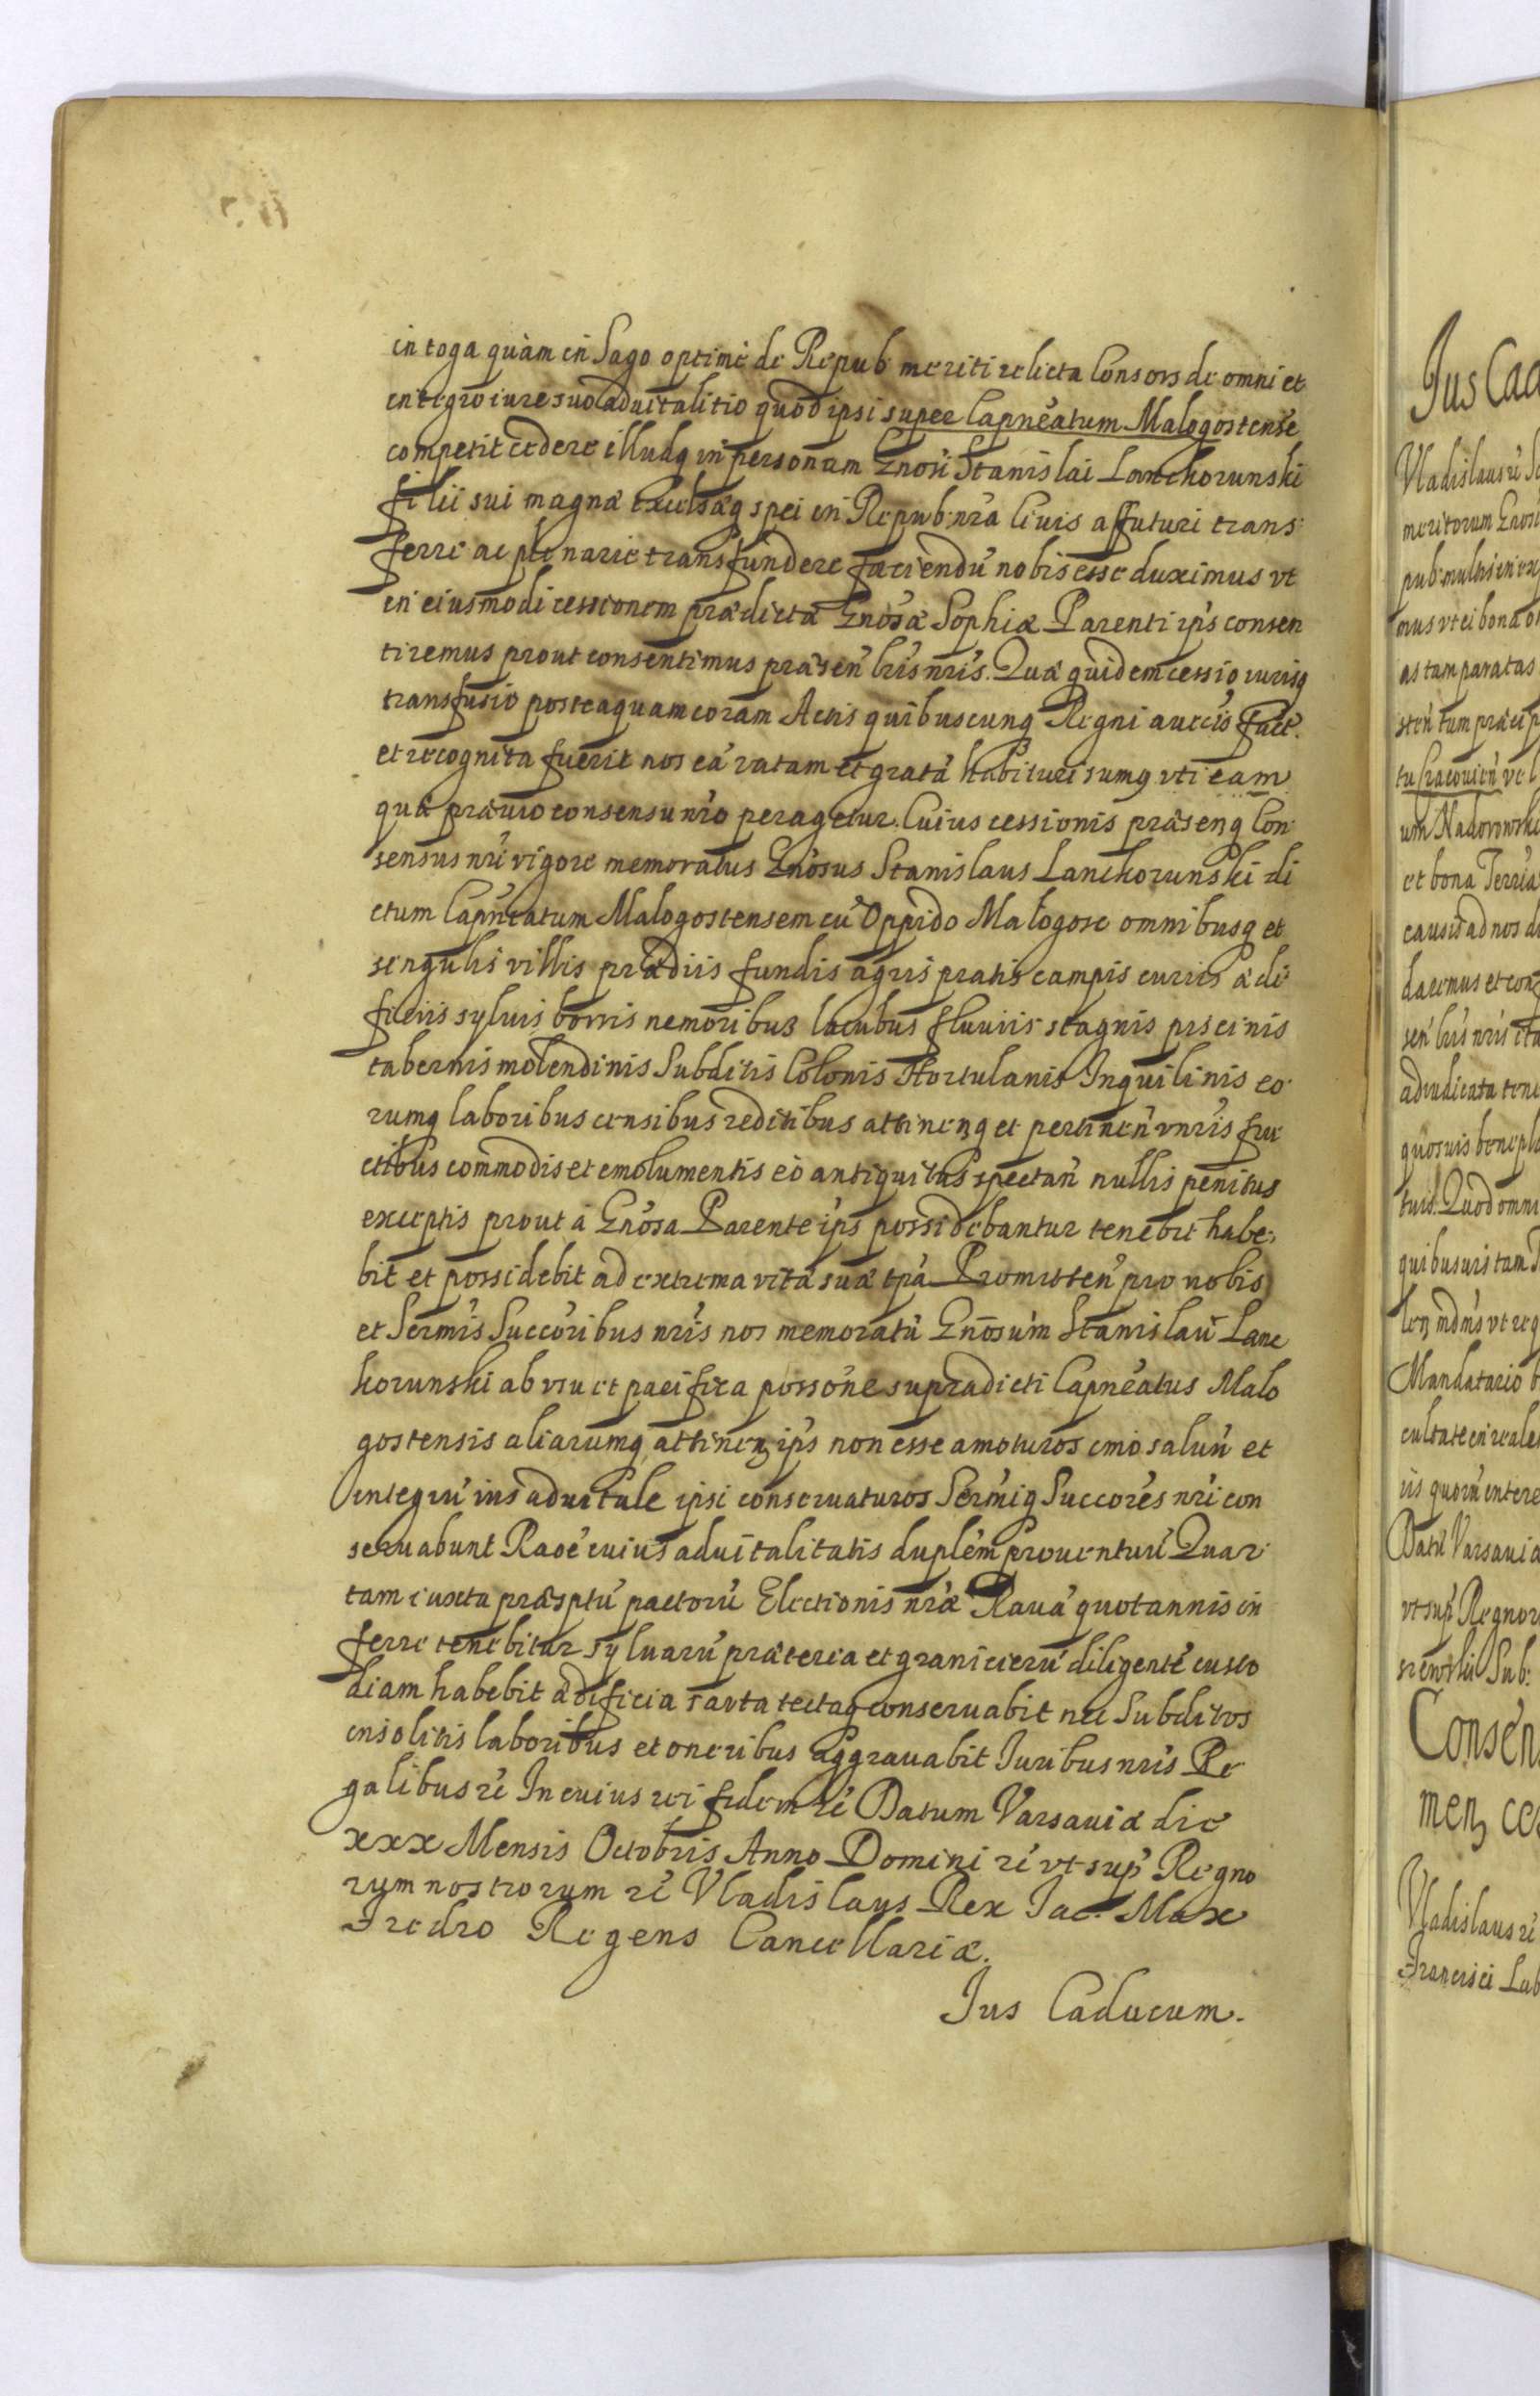 in toga quàm in Sago optimè de Repub: meriti relicta Consors de omni et
integro iure suo aduitalitio quod ipsi super Capneátum Malogostensé
competit cedere illudq in personam Gnosi Stanislai Lanckorunski
filii sui magnæ excelsæq spei in Repub: nra Ciuis affuturi trans:
ferre ac plenarie transfundere faciendú nobis esse duximus vt
in eiusmodi cessionem prædictæ Gnosæ Sophiæ Parenti ips consen
tiremus prout consentimus præsen lris nris. Quæ quidem cessio iurisq
transfusio posteaquam coram Actis quibuscunq Regni aucis fact.
et recognita fuerit nos eá ratam et gratá habituri sumq vti eam
quæ præuio consensu nro peragetur. Cuius cessionis præsenq Con
sensus nri vigore memoratus Gnosus Stanislaus Lanckorunski di
ctum Capneatum Malogostensem cú Oppido Malogosc omnibusq et
singulis villis prædiis fundis agris pratis campis curiis ædi
ficiis syluis borris nemoribus lacubus fluuiis stagnis piscinis
tabernis molendinis Subditis Colonis Hortulanis Inquilinis eo
rumq laboribus censibus reditibus attinenq et pertinen vnris fru
ctibus commodis et emolumentis eò antiquitus spectan nullis penitus
exceptis prout à Gnosa Parente ips possidebantur tenebit habe:
bit et possidebit ad extrema vitæ suæ tpa Promitten pro nobis
et Sermis Succoribus nris nos memoratú Gnosum Stanislaú Lanc
korunski ab vsu et pacifica possone supradicti Capneatus Malo
gostensis aliarumq attinen ips non esse amoturos imò saluú et
integrú ius aduitale ipsi conseruaturos Sermiq Succores nri con
seruabunt Raoé cuius aduitalitatis duplem prouentuú Quar
tam iuxta præsptú pactorú Electionis nræ Rauá quotannis in
ferre tenebitur syluarú præterea et granicierú diligentè custo
diam habebit ædificia sarta tectaq conseruabit nec Subditos
insolitis laboribus et oneribus aggrauabit Iuribus nris Re
galibus rć In cuius rei fidem rć Datum Varsauiæ die
xxx Mensis Octobris Anno Domini rć vt sup Regno
rum nostrorum rć Vladislaus Rex Jac: Max
Fredro Regens Cancellariæ.
Jus Caducum.
Jus Cad
Vladislaus rć
meritorum Gnosi
pub: multis in
mus vt ei bona
as tam paratas
tú Cracouien vel
um Nadorowski
et bona Terra
causis ad nos
daremus et con
sen lris nris ita
adiudicata
quosuis benepla
tuis. Quod omni
quibusuis tam
Mandatario
cultate in reale
iis quorú intere
Datú Varsauiæ
vt sup Regnor
Sub:
Consen
men ces
Vladislaus rć
Francisci Lub